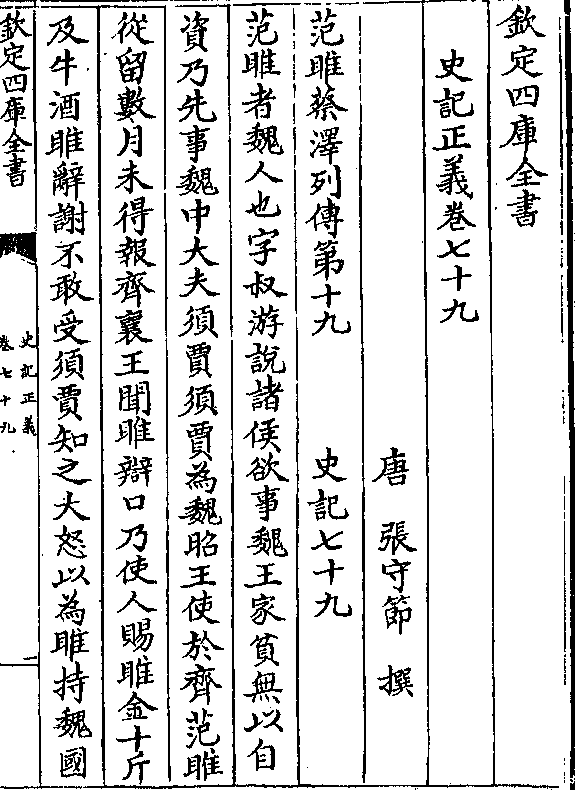 欽定四庫全書
史記正義卷七十九
唐 張守節 撰
范雎蔡澤列傳第十九 史記七十九
范雎者魏人也字叔游說諸侯欲事魏王家貧無以自
資乃先事魏中大夫須賈須賈為魏昭王使於齊范雎
從留數月未得報齊襄王聞雎辯口乃使人賜雎金十斤
及牛酒雎辭謝不敢受須賈知之大怒以為雎持魏國
欽定四庫全書
史記正義
卷七十九
一